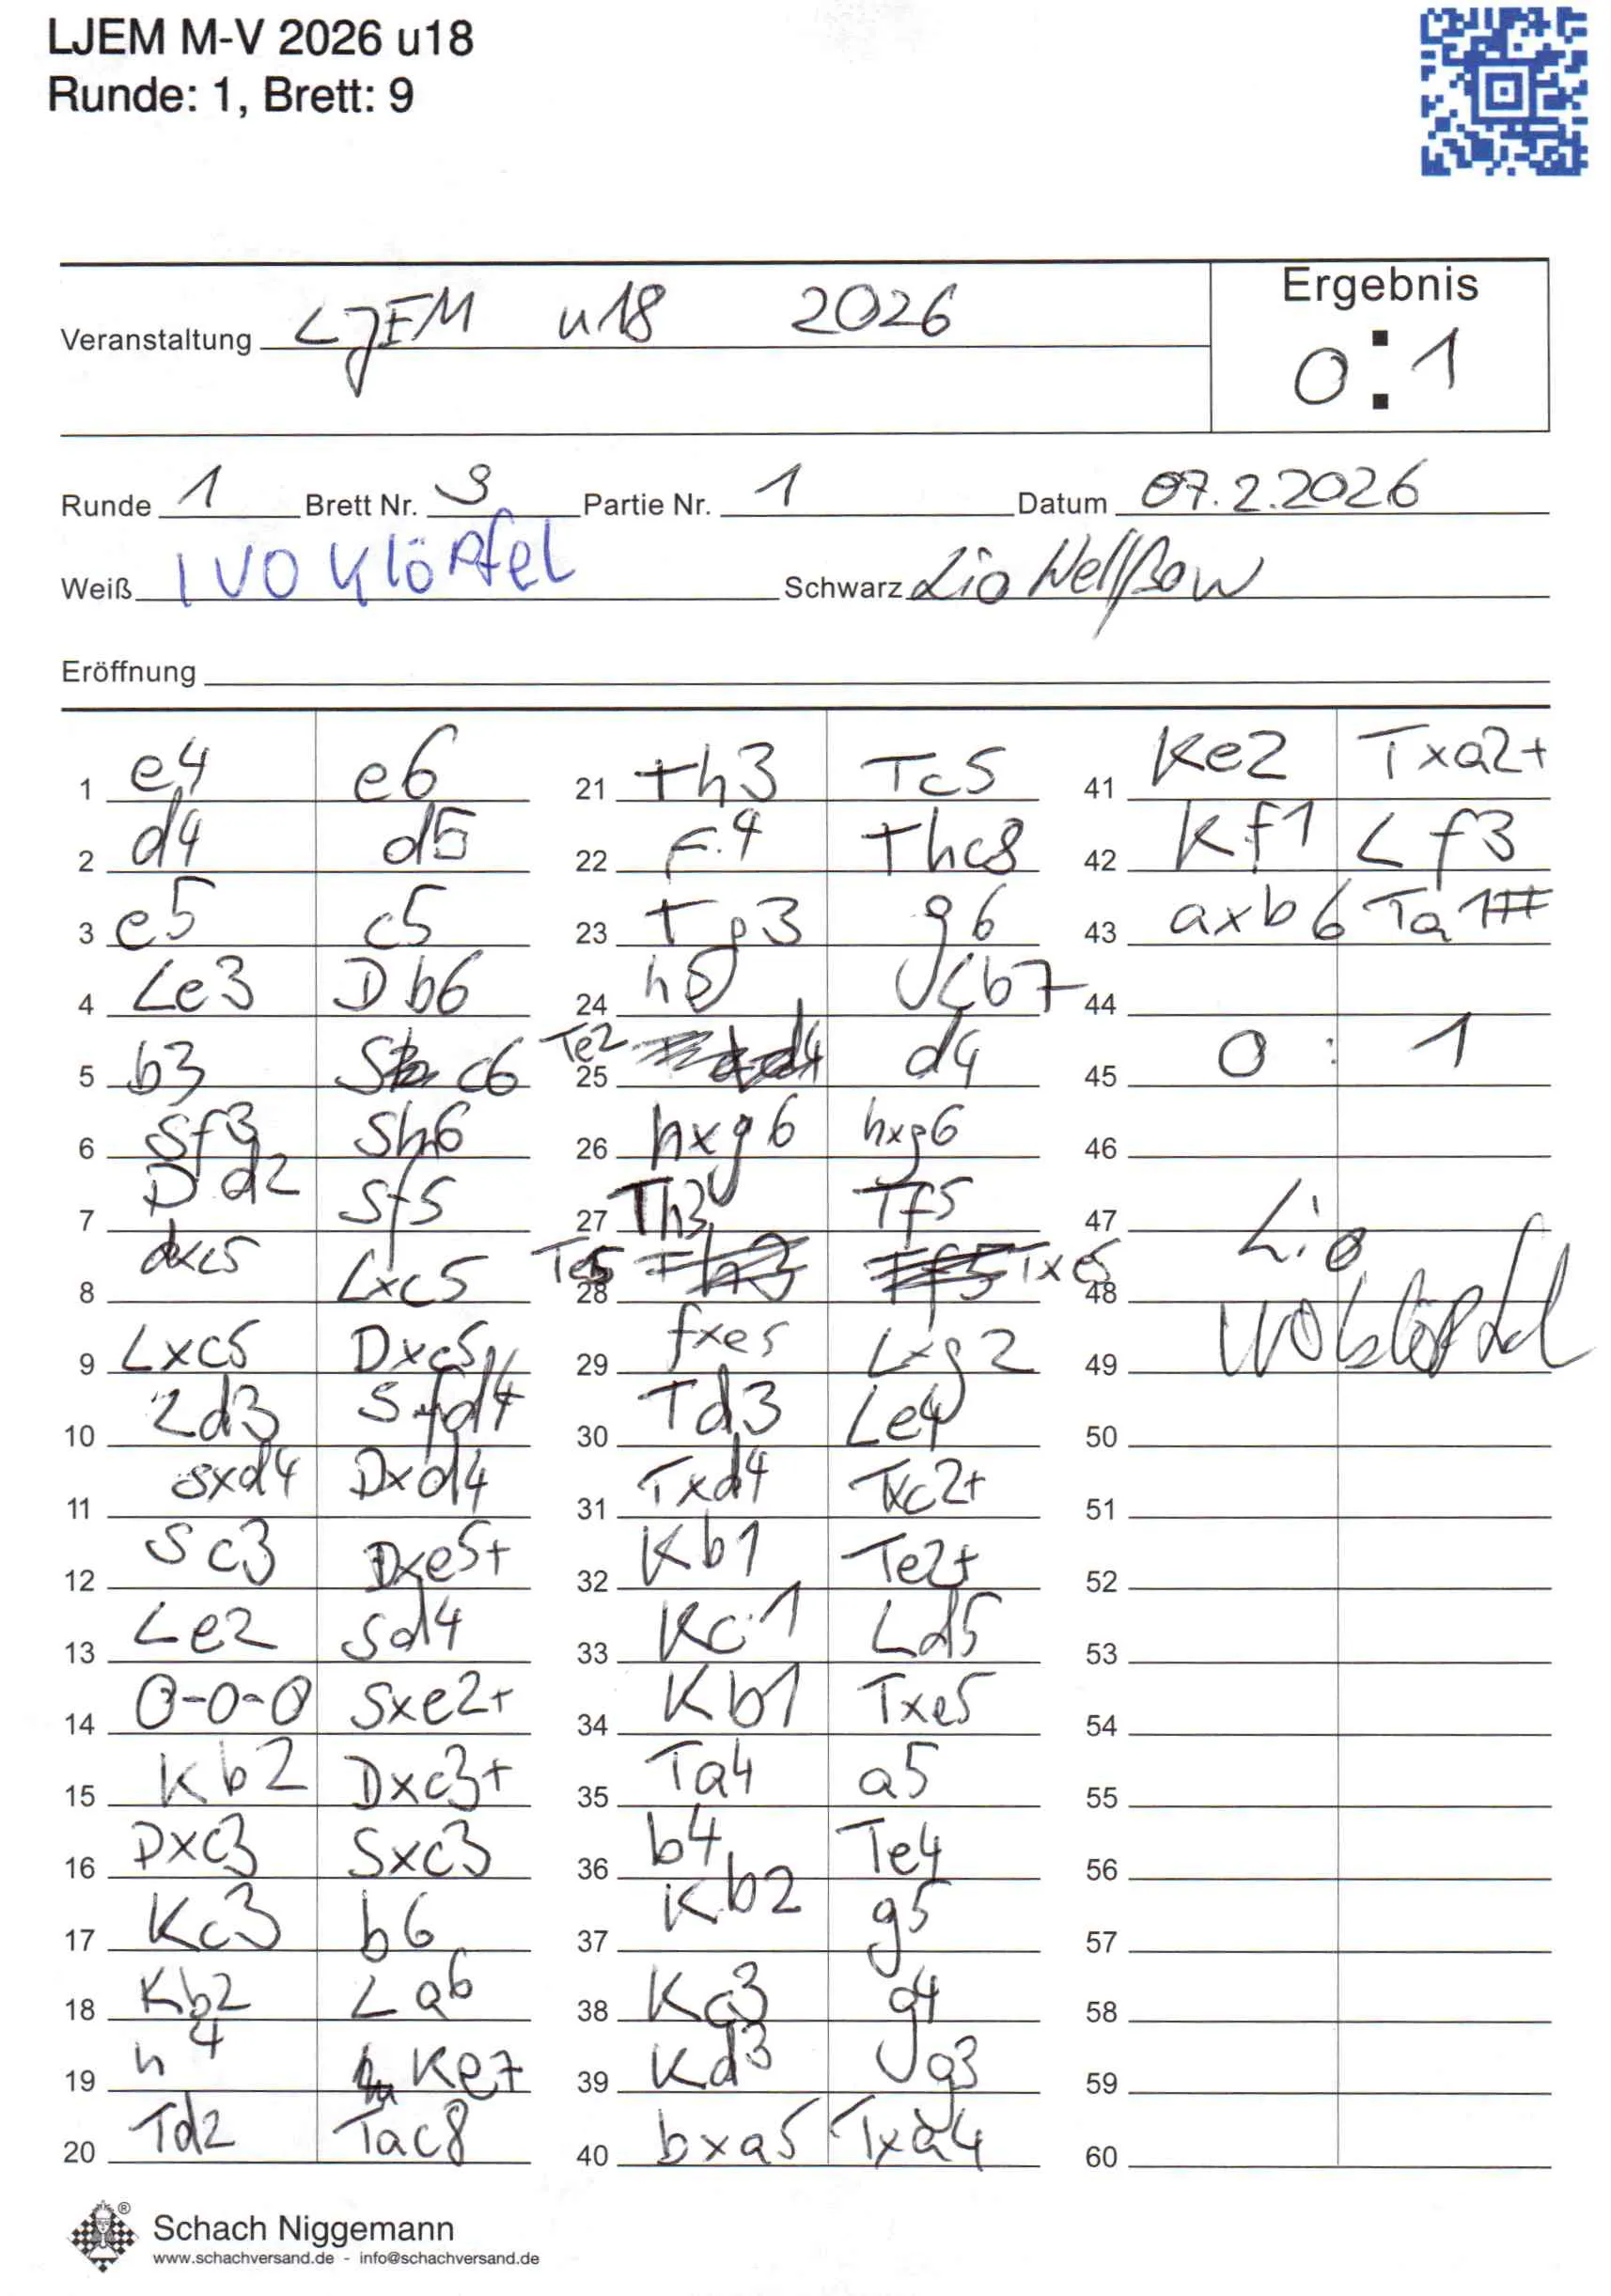 LJEM M-V 2026 u18
Runde: 1, Brett: 9
Veranstaltung LJEM u18 2026
Ergebnis
0:1
Runde 1 Brett Nr. 9 Partie Nr. 1 Datum 07.2.2026
Weiß IVO Klöpfel Schwarz Lio
Eröffnung
1 e4 e6
2 d4 d5
3 e5 c5
4 Le3 Db6
5 b3 Sc6
6 Sf3 Sh6
7 Dd2 Sf5
8 dxc5 Lxc5
9 Lxc5 Dxc5
10 Ld3 Sfd4
11 sxd4 Dxd4
12 Sc3 Dxe5+
13 Le2 Sd4
14 0-0-0 Sxe2+
15 Kb2 Dxc3+
16 Dxc3 Sxc3
17 Kc3 b6
18 Kb2 La6
19 h4 Ke7
20 Td2 Tac8
21 Th3 Tc5
22 F4 Thc8
23 Tg3 g6
24 h5 Lb7
25 Te2 d4
26 hxg6 hxg6
27 Th3 Tf5
28 Te5 Txe5
29 fxe5 Lxg2
30 Td3 Le4
31 Txd4 Txc2+
32 Kb1 Te2+
33 Kc1 Ld5
34 Kb1 Txe5
35 Ta4 a5
36 b4 Te4
37 Kb2 g5
38 Kc3 g4
39 Kd3 g3
40 bxa5 Txa4
41 Ke2 Txa2+
42 Kf1 Lf3
43 axb6 Ta1#
44
45 0 : 1
46
47 Lio
48
49 IVO Klöpfel
50
51
52
53
54
55
56
57
58
59
60
Schach Niggemann
www.schachversand.de - info@schachversand.de